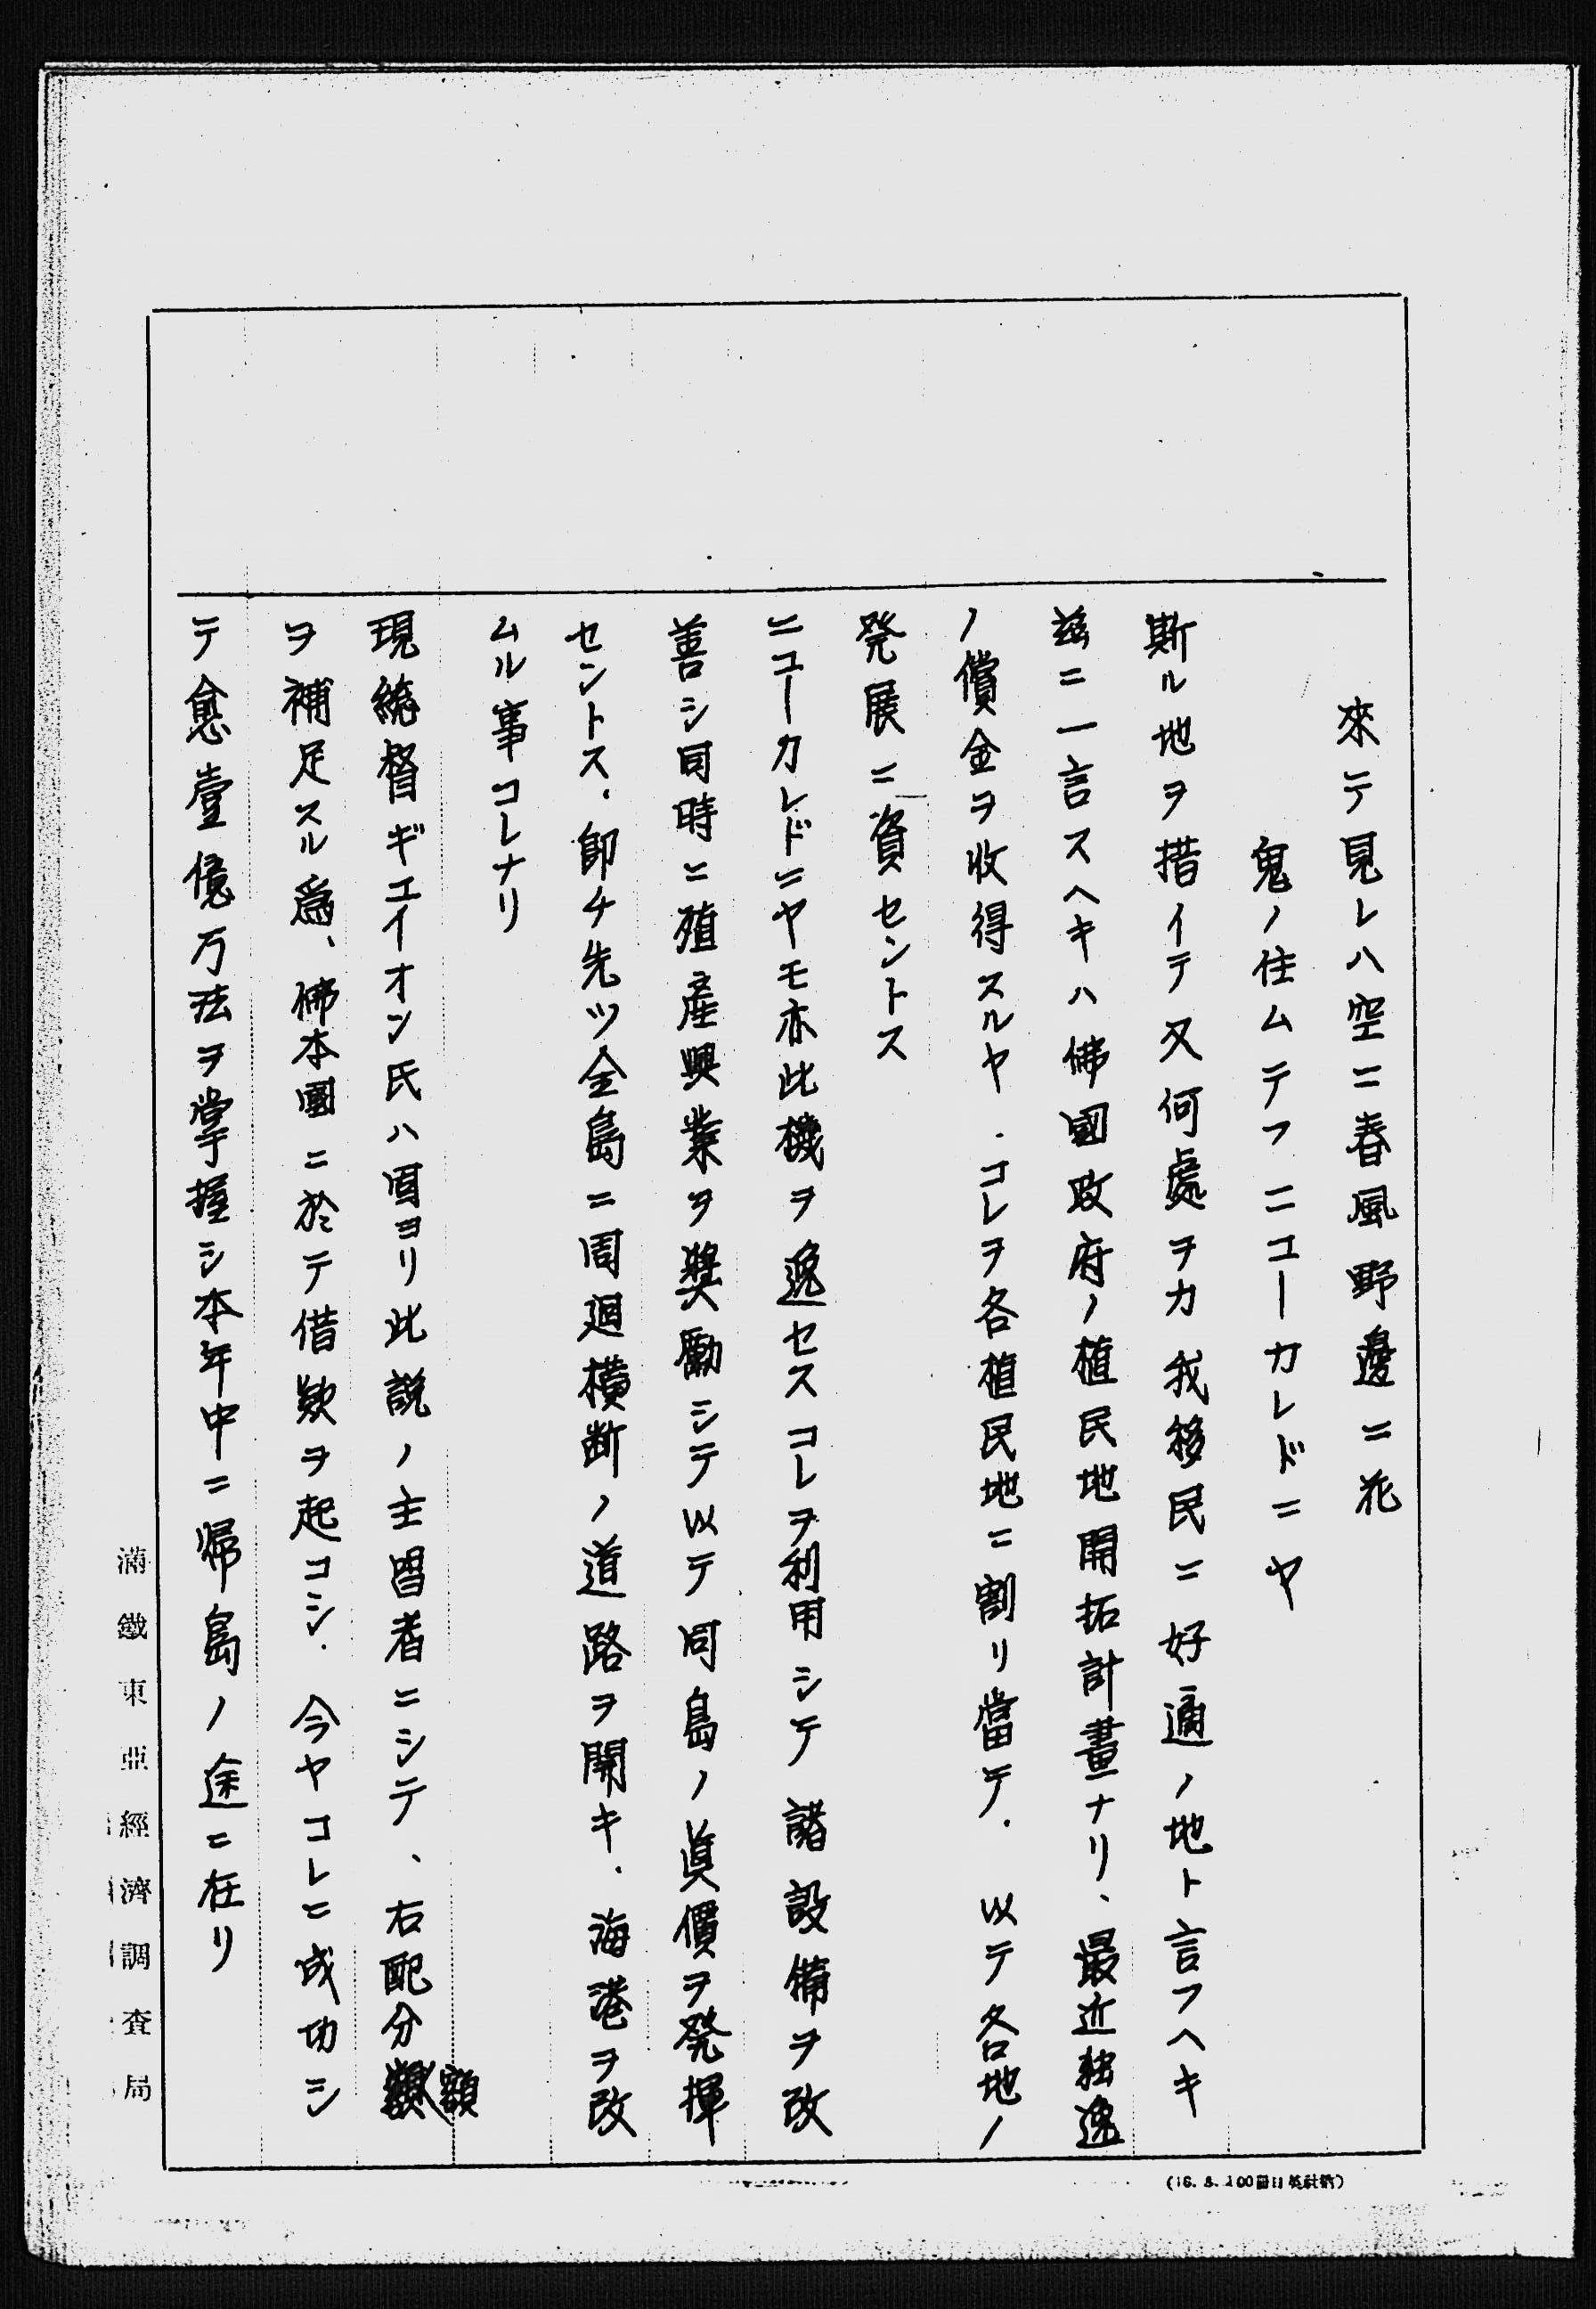 來テ見レハ空ニ春風野邊ニ花
鬼ノ住ムテフニコーカレドニヤ
斯ル地ヲ措イテ又何處ヲカ我移民ニ好適ノ地ト言フヘキ
茲ニ一言スヘキハ佛國政府ノ植民地開拓計畫ナリ、最近独逸
ノ償金ヲ收得スルヤ、コレヲ各植民地ニ割リ當テ、以テ各地ノ
発展ニ資セントス
ニユーカレドニヤモ亦此機ヲ逸セスコレヲ利用シテ諸設備ヲ改
善シ同時ニ殖產興業ヲ奬勵シテ以テ同島ノ眞價ヲ発揮
セントス、卽チ先ツ全島ニ周廻横断ノ道路ヲ開キ、海港ヲ改
ムル事コレナリ
現總督ギエイオン氏ハ固ヨリ此說ノ主唱者ニシテ、右配分額
ヲ補足スル爲、佛本國ニ於テ借欵ヲ起コシ、今ヤコレニ成功シ
テ愈壹億万法ヲ掌握シ本年中ニ帰島ノ途ニ在リ
滿鐵東亞經濟調査局